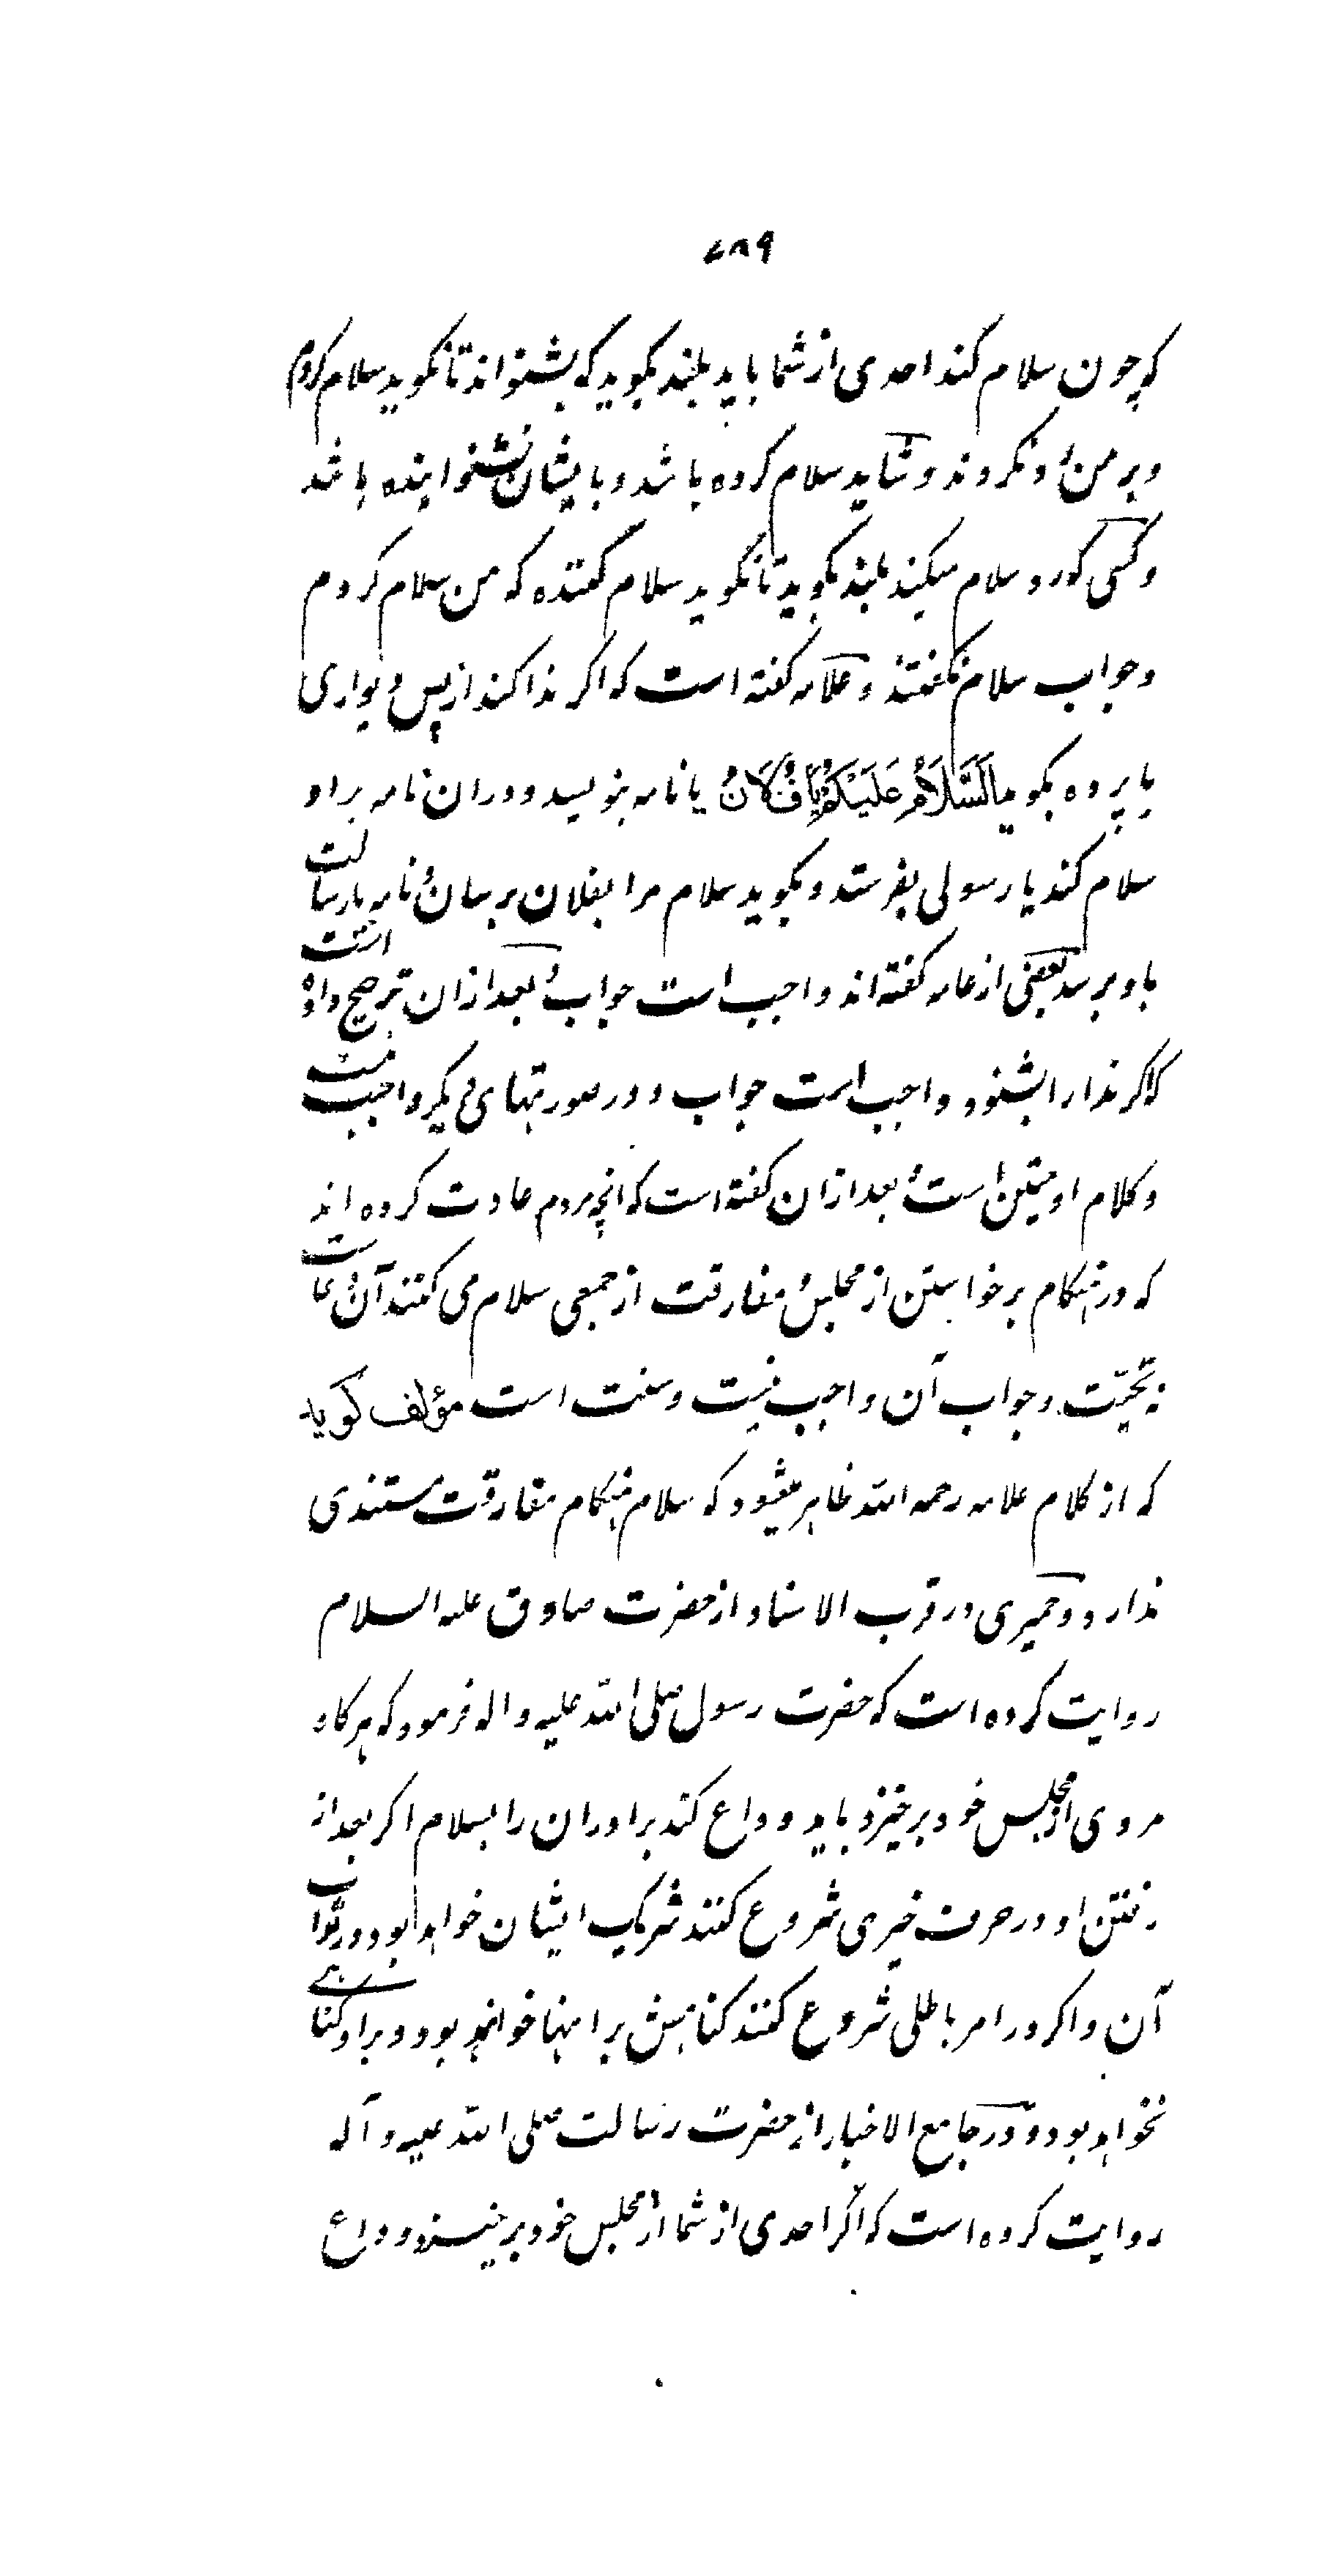 ۷۸۹
که چون سلام کند احدی از شما باید بلند بگوید که بشنواند تا نگوید سلام کردم
و بر من رد نکردند و شاید سلام کرده باشد و بایشان نشنوانیده باشد
و کسی که رد سلام میکند بلند بگوید تا نگوید سلام کننده که من سلام کردم
و جواب سلام نگفتند و علامه گفته است که اگر ندا کند از پس دیواری
یا پرده بگوید السَّلَامُ عَلَیْکُمْ یَا فُلَانُ یا نامه بنویسد و در ان نامه بر او
سلام کند یا رسولی بفرستد و بگوید سلام مرا بفلان برسان و نامه یا رسالت
باو برسد بعضی از عامه گفته اند واجب است جواب و بعد از ان ترجیح داده است
که اگر ندا را بشنود واجب است جواب و در صورتهای دیگر واجب نیست
و کلام او متین است و بعد از ان گفته است که انچه مردم عادت کرده اند
که در هنگام برخواستن از مجلس و مفارقت از جمعی سلام می کنند آن دعاست
نه تحیّت و جواب آن واجب نیست و سنت است مؤلف گوید
که از کلام علامه رحمه الله ظاهر میشود که سلام هنگام مفارقت مستندی
ندارد و حمیری در قرب الاسناد از حضرت صادق علیه السلام
روایت کرده است که حضرت رسول صلی الله علیه و اله فرمود که هرگاه
مردی از مجلس خود برخیزد باید وداع کند برادران را بسلام اگر بعد از
رفتن او در حرف خیری شروع کنند شریک ایشان خواهد بود در ثواب
آن و اگر در امر باطلی شروع کنند گناهش بر اینها خواهد بود و بر او گناهی
نخواهد بود و در جامع الاخبار از حضرت رسالت صلی الله علیه و آله
روایت کرده است که اگر احدی از شما از مجلس خود برخیزد و وداع